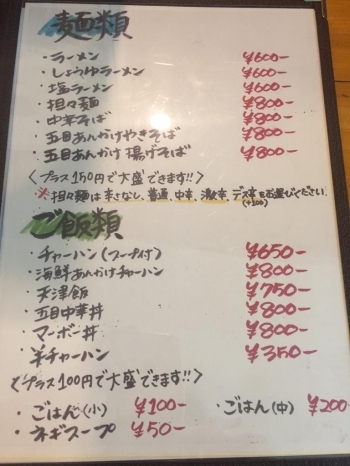 麺類
・ラーメン ¥600-
・しょうゆラーメン ¥600-
・塩ラーメン ¥600-
・担々麺 ¥800-
・中華そば ¥800-
・五目あんかけやきそば ¥800-
・五目あんかけ揚げそば ¥800-
〈プラス150円で大盛できます!!〉
※担々麺は辛さなし、普通、中辛、激辛、デス辛をお選びください。
(+100)
ご飯類
・チャーハン(スープ付) ¥650-
・海鮮あんかけチャーハン ¥800-
・天津飯 ¥750-
・五目中華丼 ¥800-
・マーボー丼 ¥800-
・半チャーハン ¥350-
〈プラス100円で大盛できます!!〉
・ごはん(小) ¥100- ・ごはん(中) ¥200
・ネギスープ ¥50-